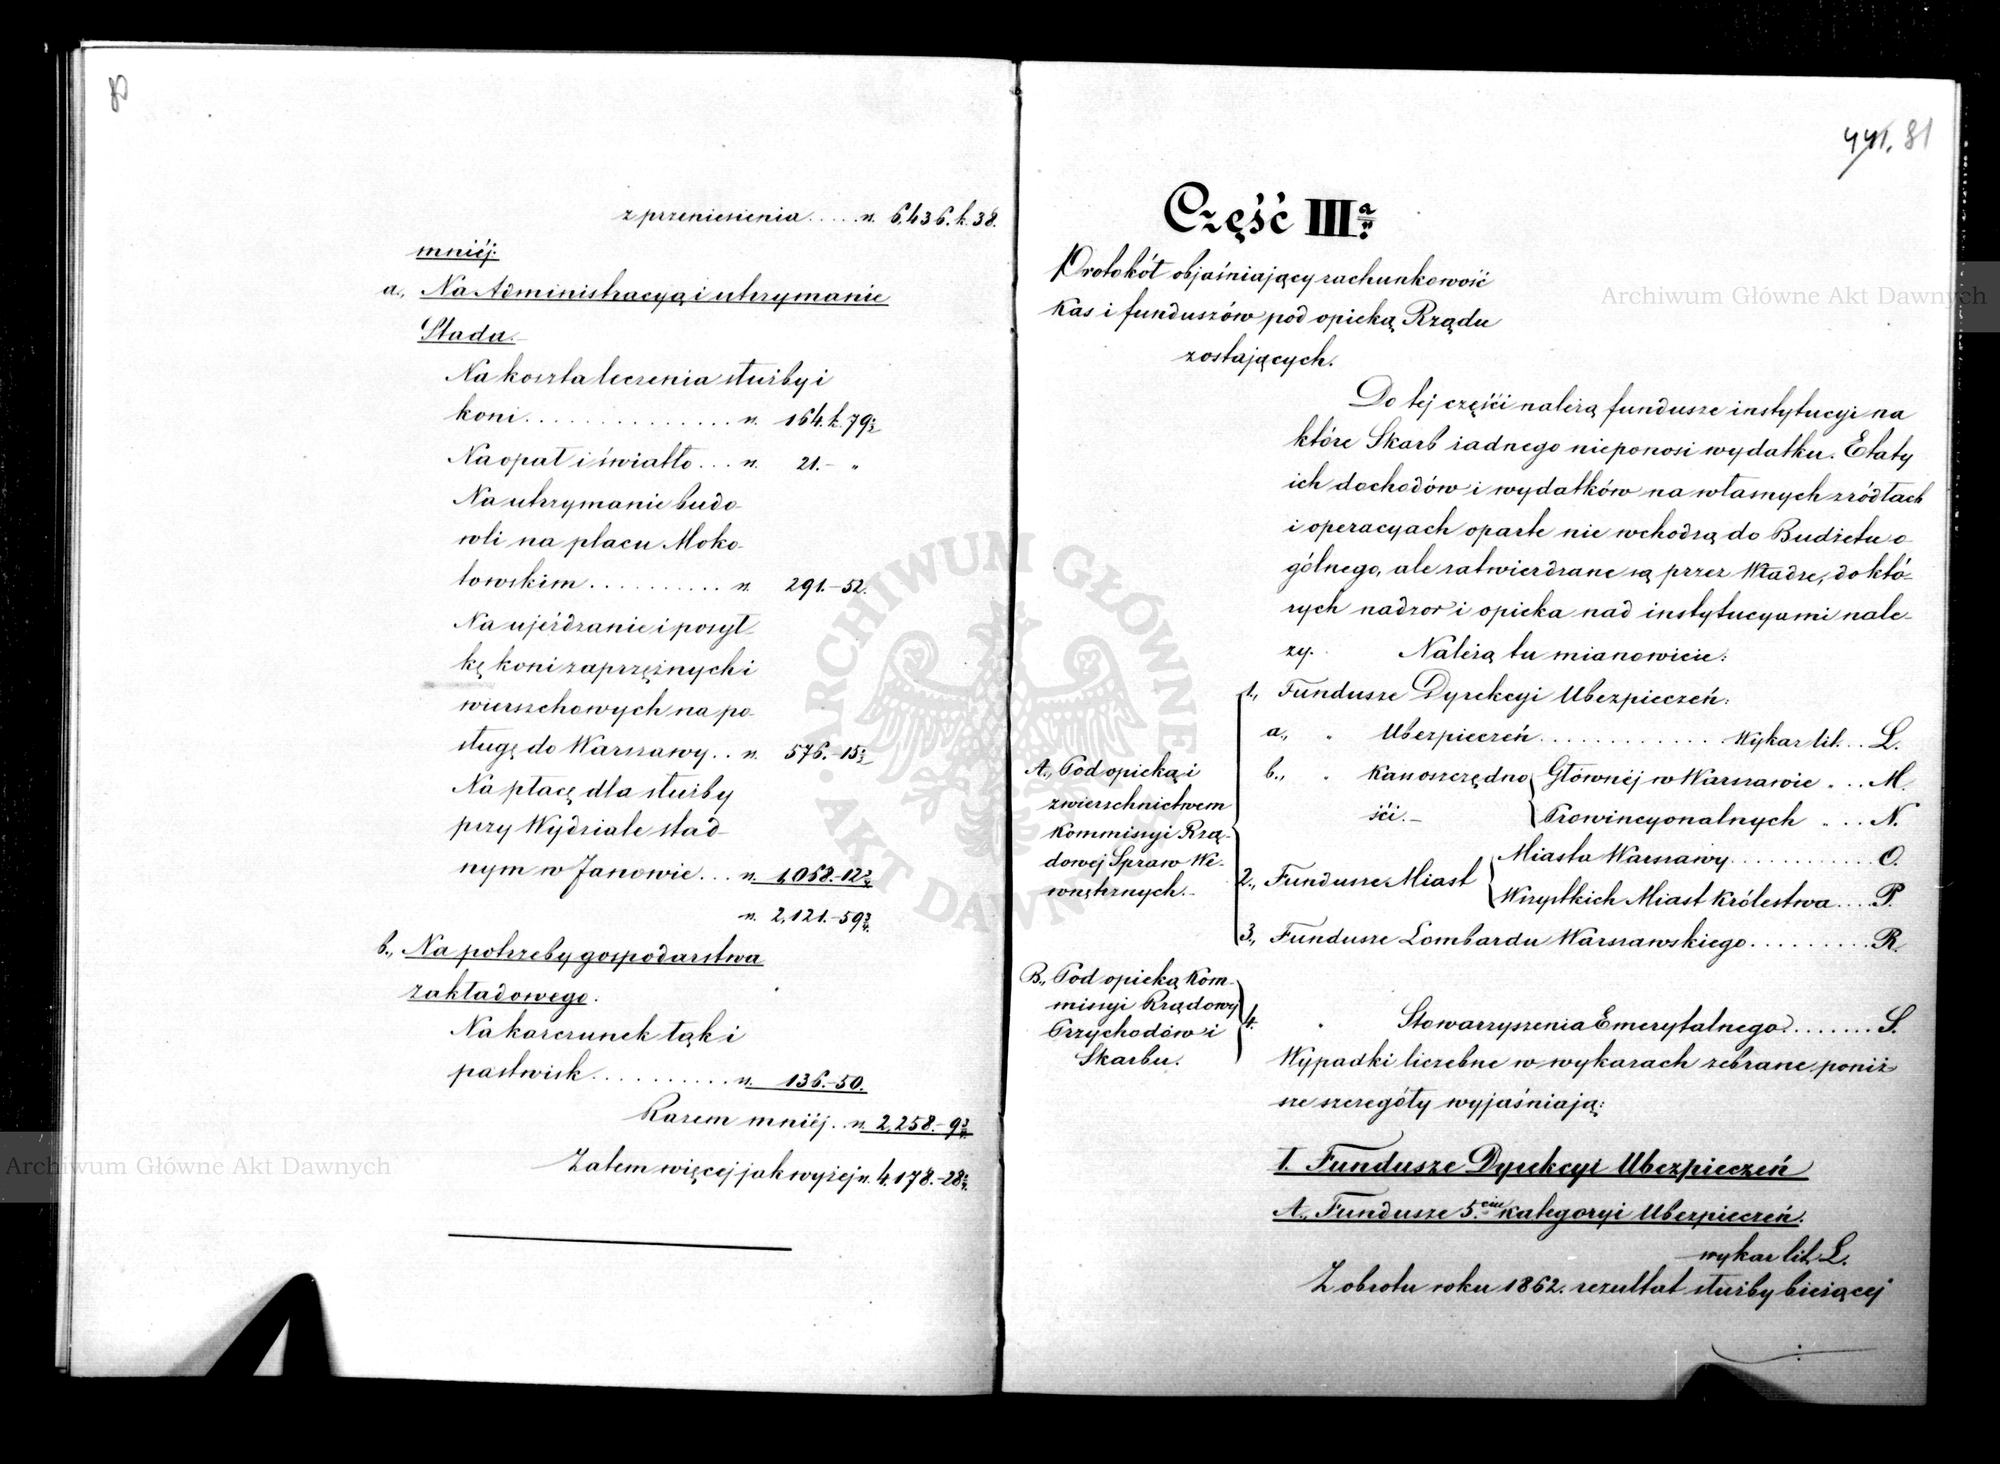 80
z przeniesienia ..... n. 6,436. k. 38.
mniéj:
a., Na Administracyą i utrzymanie
Stada.-
Na koszta leczenia służby i
koni .............. n. 164. k. 79½
Na opał i światło ... n. 21.- "
Na utrzymanie budo-
wli na placu Moko-
towskim .......... n. 291.-52.
Na ujeżdżanie i posył-
kę koni zaprzężnych i
wierzchowych na po-
sługę do Warszawy .. n. 576.-15½
Na płacę dla służby
przy Wydziale stad-
nym w Janowie ... n. 1,068.-12¾
n. 2,121.-59¾
b., Na potrzeby gospodarstwa
zakładowego.
Na karczunek łąk i
pastwisk .......... n. 136.-50.
Razem mniéj .. n. 2,258.-9¾
Zatem więcej jak wyżej n. 4,178.-28¼
441. 81
Część IIIa
Protokół objaśniający rachunkowość
Kas i funduszów pod opieką Rządu
zostających.
Do tej części należą fundusze instytucyi na
które Skarb żadnego nieponosi wydatku. Etaty
ich dochodów i wydatków na własnych źródłach
i operacyach oparte nie wchodzą do Budżetu o-
gólnego, ale zatwierdzane są przez Władze, do któ-
rych nadzor i opieka nad instytucyami nale-
zy. Należą tu mianowicie:
A., Pod opieką i
zwierzchnictwem
Kommissyi Rzą-
dowej Spraw We-
wnętrznych.-
1., Fundusze Dyrekcyi Ubezpieczeń:
a., " Ubezpieczeń ............ Wykaz lit... L.
b., " Kas oszczędno- Głównéj w Warszawie " ... M.
ści.- Prowincyonalnych " ... N.
2., Fundusze Miast Miasta Warszawy ............ O.
Wszystkich Miast Królestwa .... P.
3., Fundusze Lombardu Warszawskiego ......... R.
B., Pod opieką Kom-
missyi Rządowej
Przychodów i
Skarbu.
4. " Stowarzyszenia Emerytalnego ....... S.
Wypadki liczebne w wykazach zebrane poniż-
sze szczegóły wyjaśniają:
I. Fundusze Dyrekcyi Ubezpieczeń
A., Fundusze 5.ciu kategoryi Ubezpieczeń.
wykaz lit. L.
Z obrotu roku 1862. rezultat służby bieżącej
ARCHIWUM GŁÓWNE AKT DAWNYCH
Archiwum Główne Akt Dawnych
Archiwum Główne Akt Dawnych